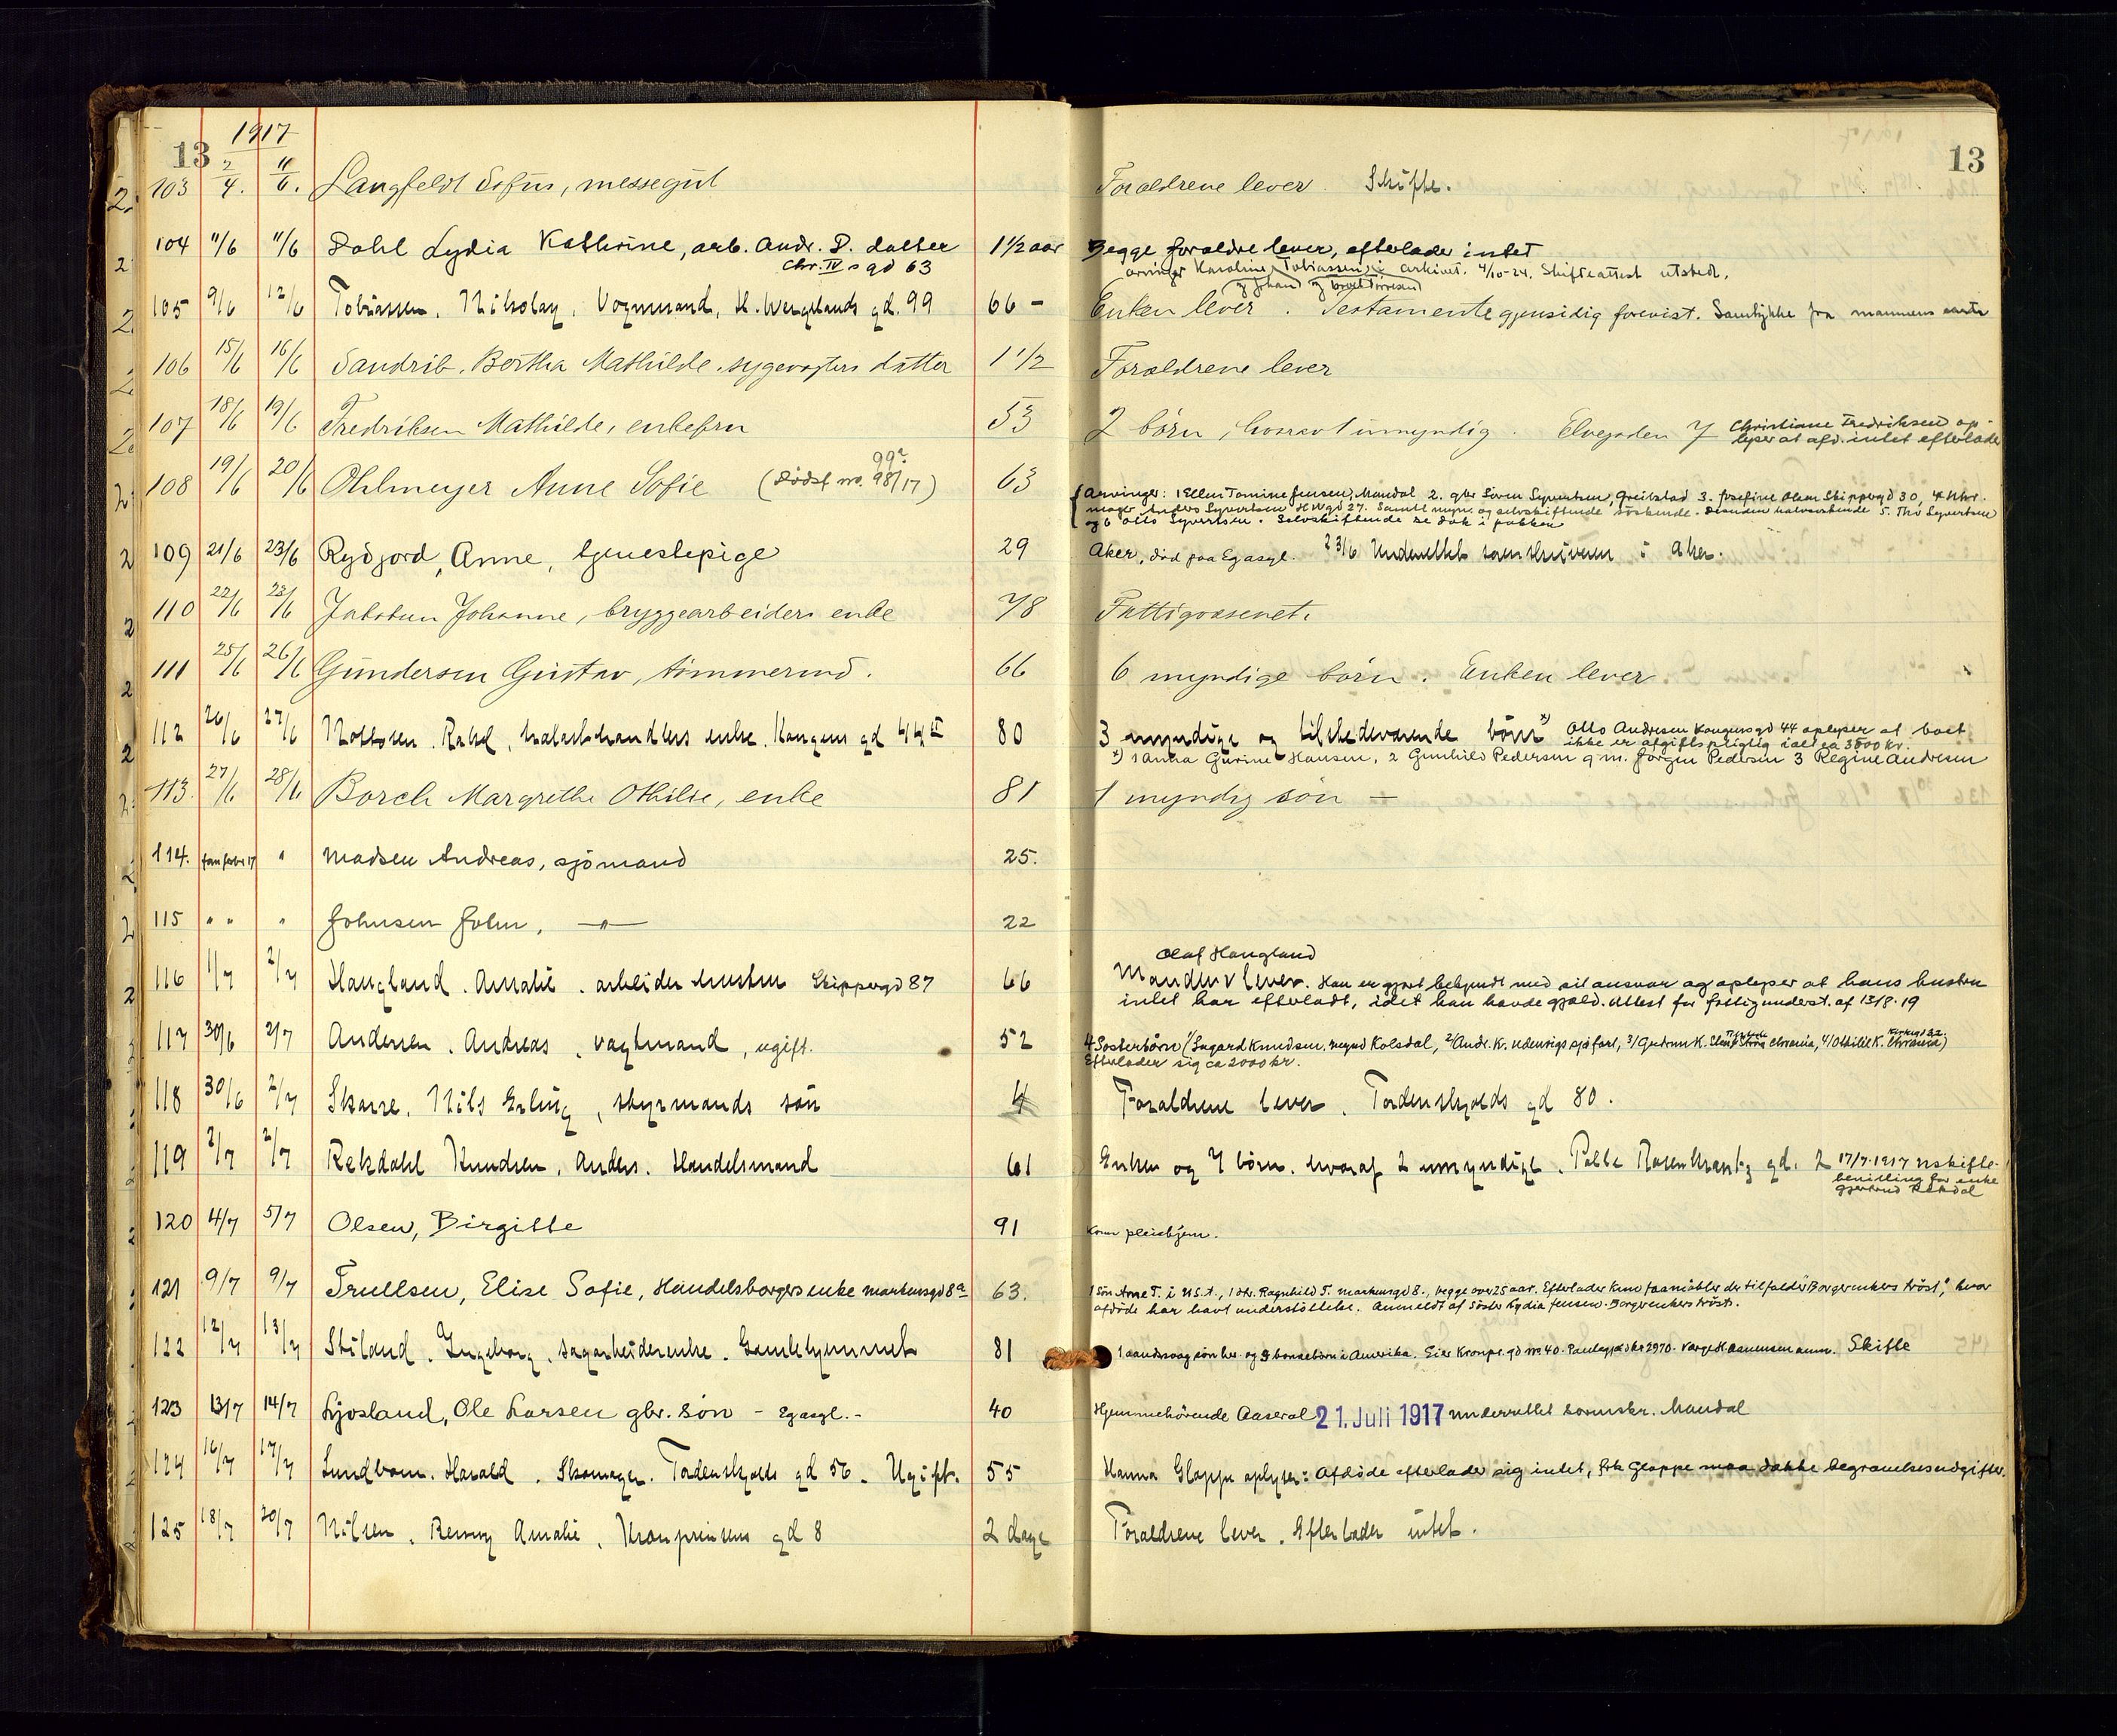 1917
13
13
103 2/4. 11/6. Langfeldt Sofus, messegut Forældrene lever. Skifte.
104 11/6 11/6 Dahl Lydia Kathrine, arb. Andr. D. datter 1 1/2 aar Begge forældre lever, efterlader intet
Chr. IV s gd 63
arvinger Karoline Tobiassen i arkivet. 4/10-24. Skifteattest utstedt.
105 9/6 12/6 Tobiassen, Nikolay, Vognmand, H. Wergelands gd. 99 66 - Enken lever. Testamente gjensidig forevist. Samtykke fra mannens
106 15/6 16/6 Sandrib, Bertha Mathilde, sygevogters datter 1 1/2 Forældrene lever
107 18/6 19/6 Fredriksen Mathilde, enkefru 53 2 børn, hvorav 1 umyndig. Elvegaden 7 Christiane Fredriksen op-
lyser at afd. intet efterlader
108 19/6 20/6 Ohlmeyer Anne Sofie (Dødsf. no. 98/17) 63
99?
Arvinger: 1 Ellen Tomine Jensen, Mandal 2. gbr Søren Syvertsen, Greibstad 3. Josefine Olsen Skippergd 30, 4
mager Anders Syvertsen H W gd 27. Samtl. myn. og selvskiftende søskende. Desuden halvsøskende 5. Thv Syvertsen
og 6 Otto Syvertsen. Selvskiftende se dok i pakken
109 21/6 23/6 Rydjord, Anne, tjenestepige 29 Aker, død paa Eg asyl. 23/6 Underrettet sorenskriveren i Aker.
110 22/6 23/6 Jakobsen Johanne, bryggearbeiders enke 78 Fattigvæsenet.
111 25/6 26/6 Gundersen Gustav, tømmermd. 66 6 myndige børn. Enken lever
112 26/6 27/6 Rakel, enke. Kongens gd 44 80 3 myndige og tilstedeværende børn x) Otto Andresen Kongensgd 44 oplyser at boet
ikke er afgiftspligtig ialt ca 3500 kr.
x) 1 Anna Gurine Hansen, 2 Gunhild Pedersen g m. Jørgen Pedersen 3 Regine Andresen
113. 27/6 28/6 Borch Margrethe Othilie, enke 81 1 myndig søn -
114. " Madsen Andreas, sjømand 25.
115 " " " Johnsen John, —"— 22
Olaf Haugland
116 1/7 2/7 Haugland. Amalie. arbeider hustru Skippergd 87 66 Manden v lever. Han er gjort bekjendt med sit ansvar og oplyser at hans hustru
intet har efterladt, idet han havde gjæld. Attest for fattigunderst. af 13/8. 19
117 30/6 2/7 Andersen. Andreas, vagtmand, ugift. 52 4 Søsterbørn (1/ Ingard Knudsen. Kolsdal, 2/ Andr. K. udenrigs sjøfart, 3/ Gudrun K. Chrania, 4/ Othilie K. Chrania)
Efterlader sig ca 2000 kr.
118 30/6 2/7 Skarre. Nils Erling, styrmands søn 4 Forældrene lever. Tordenskjolds gd 80.
119 2/7 2/7 Rekdahl Knudsen, Anders. Handelsmand 61 Enken og 7 børn. hvoraf 2 umyndige. Palle Rosenkrantz gd. 2 17/7. 1917 uskifte-
bevilling for enke
Rekdal
120 4/7 5/7 Olsen, Birgitte 91 Kom pleiehjem.
121 9/7 9/7 Trullsen, Elise Sofie, Handelsborgers enke Markensgd 8a 63. 1 Søn Arne T. i U.S.A., 1 dtr. Ragnhild T. Markensgd 8., begge over 25 aar. Efterlader kun faa møbler der tilfalder "Borgerenkers trøst", hvor
afdøde har havt understøttelse. Anmeldt af søster Lydia Jensen. Borgerenkers trøst.
122 12/7 13/7 Støland. Ingeborg, sagarbeiderenke. Gamlehjemmet 81 1 aandssvag søn her. og 3 barnebørn i Amerika. Eier Kronpr. gd no 40. Pantegjæld kr 2970. Verge H. Aanensen anm. Skifte
123 13/7 14/7 Ljosland, Ole Larsen gbr. søn - Eg asyl. - 40 Hjemmehørende Aaseral 21. Juli 1917 underrettet sorenskr. Mandal
124 16/7 17/7 Lundbom. Harald. Skomager. Tordenskjolds gd 56. Ugift. 55 Hanna Gloppe oplyser: Afdøde efterlader sig intet, frk Gloppe maa dække begravelsesudgifter.
125 18/7 20/7 Nilsen. Amalie, Kronprinsens gd 8 2 dage Forældrene lever. Efterlader intet.